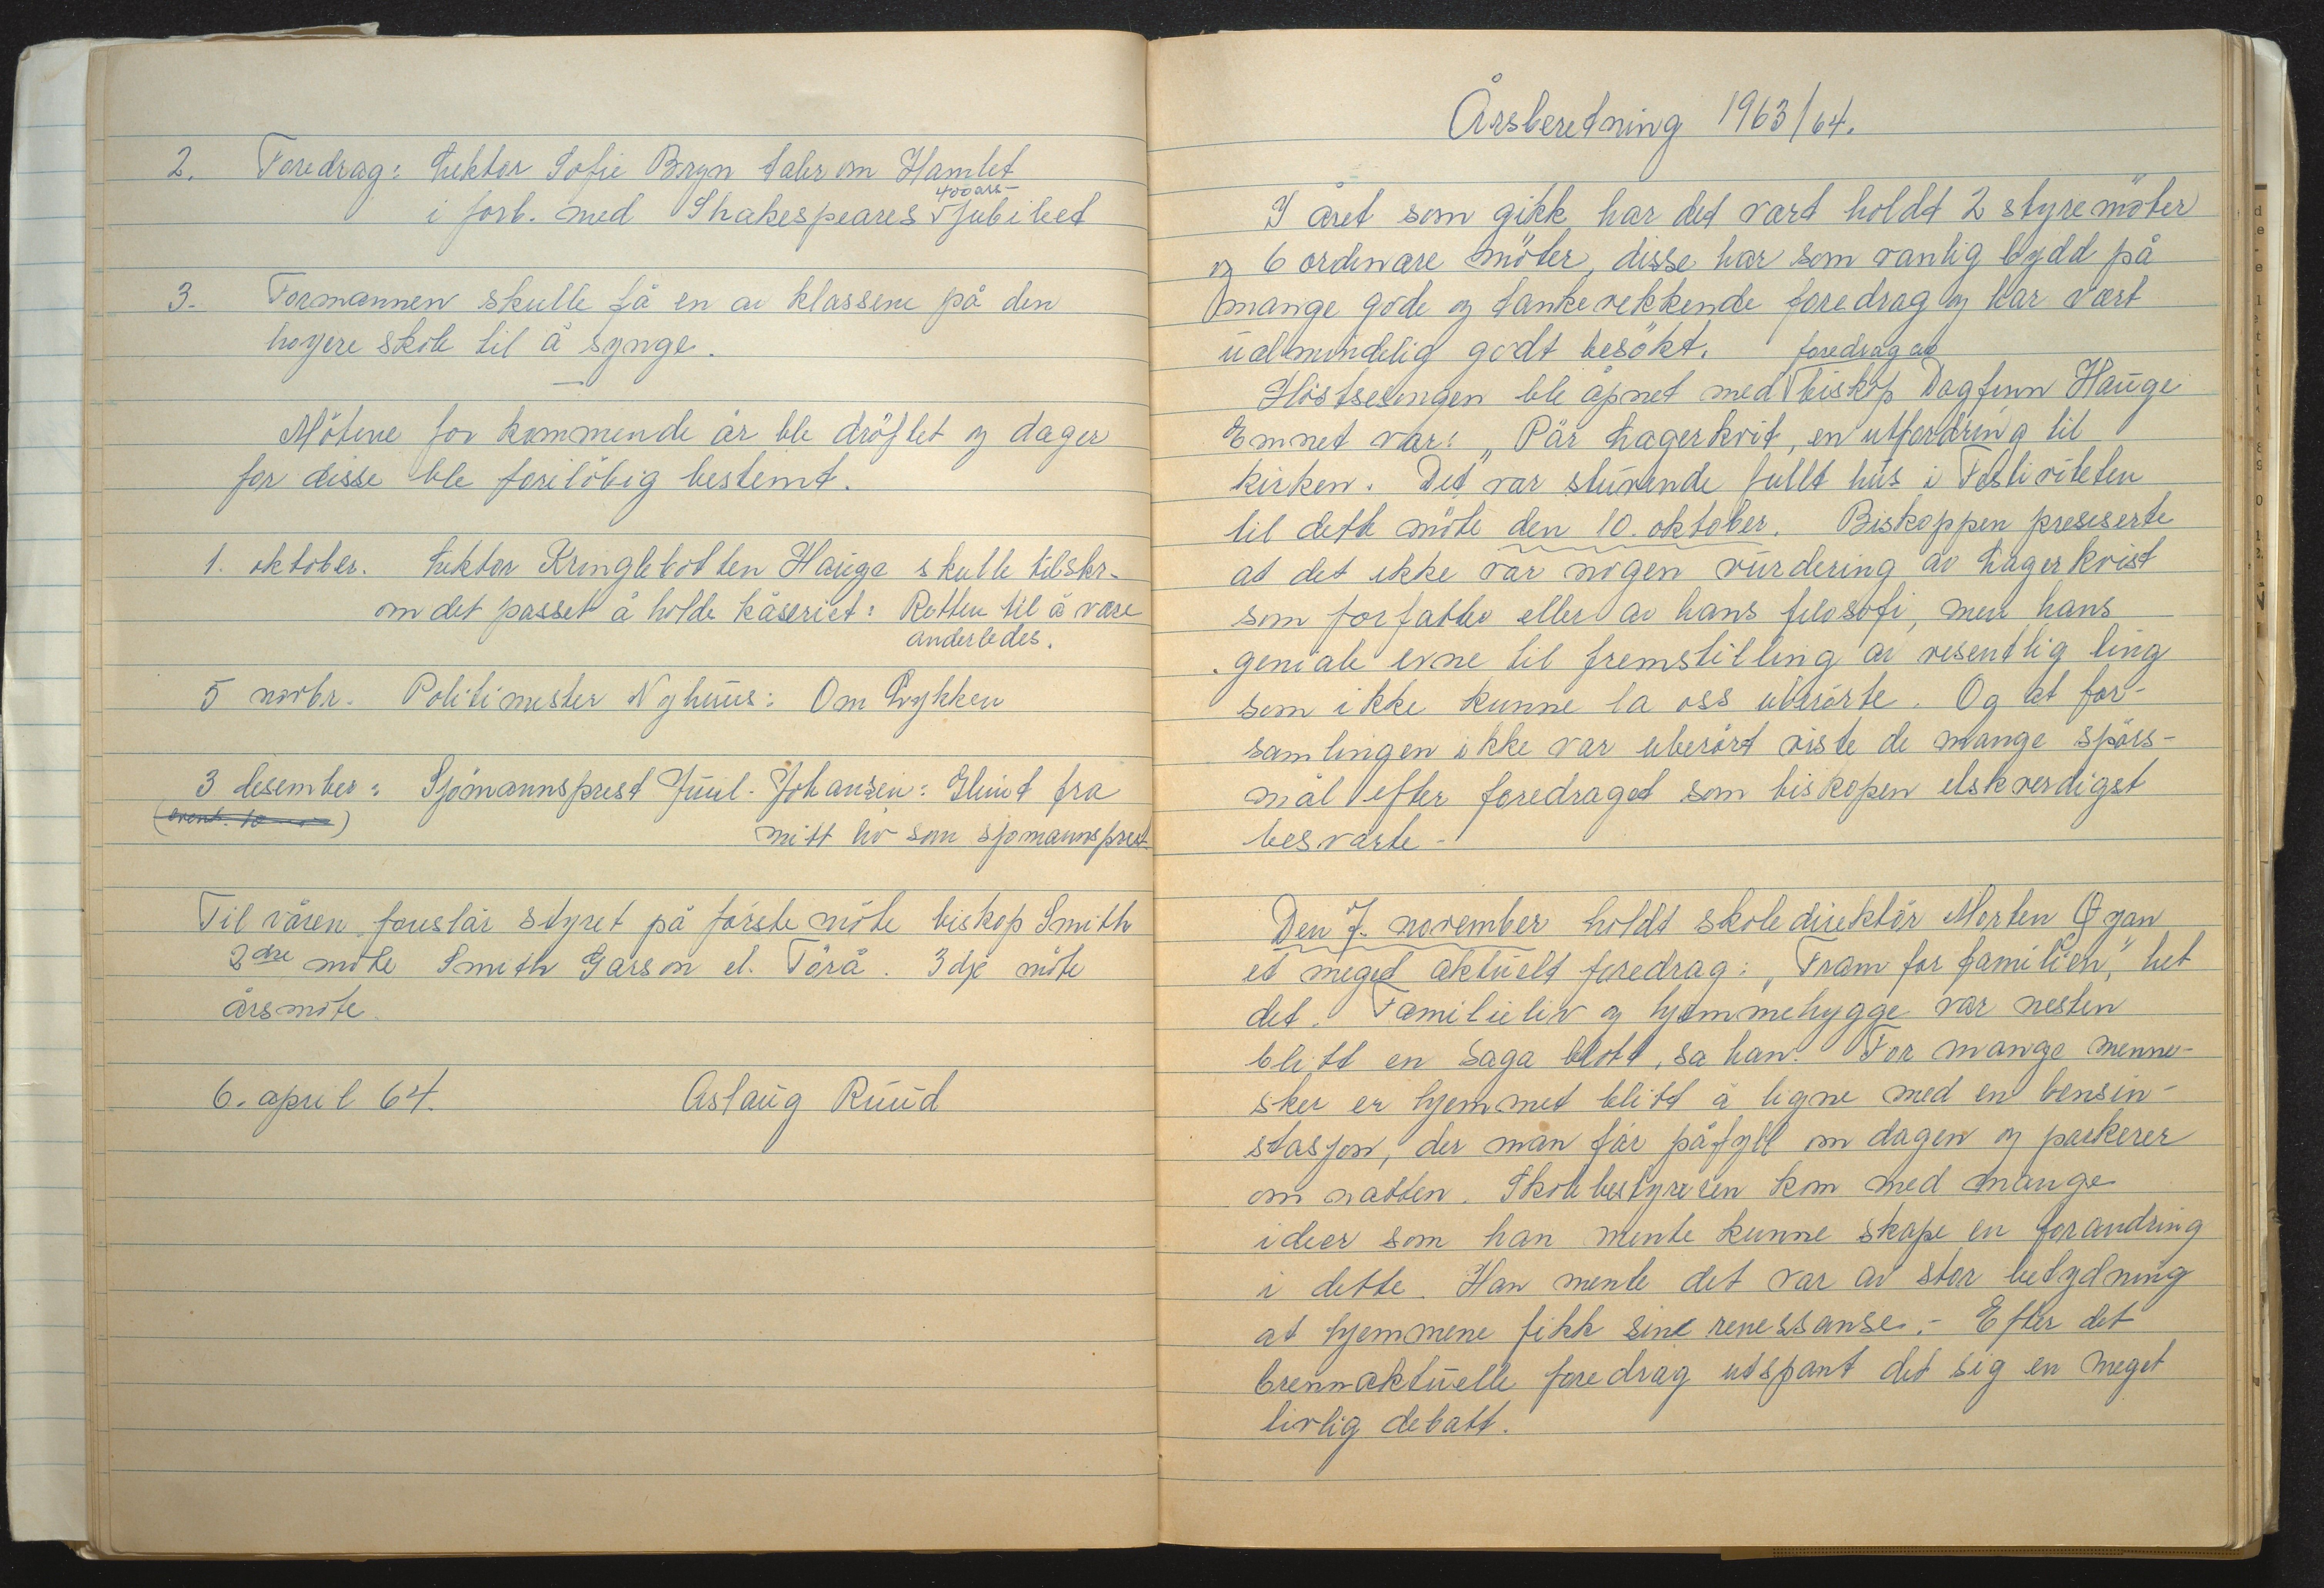 2. Foredrag: Lektor Sofie Bryn taler om Hamlet
i forb. med Shakespeares 400 års- Jubileet
3. Formannen skulle få en av klassene på den
høyere skole til å synge.
Mötene for kommende år ble dröftet og dager
for disse ble foreløbig bestemt.
1. oktober. Lektor Kringlebotten Hauge skulle tilskr.
om det passet å holde kåseriet: Retten til å være
anderledes.
5 novbr. Politimester Nyhuus: Om Lykken
3 desember: Sjömannsprest Juul-Johansen: Glimt fra
(event. 10
mitt liv som sjømannsprest
Til våren foreslår styret på første möte biskop Smith
2dre möte Smith Garson el. Törå. 3dje möte
årsmöte.
6. april 64. Aslaug Ruud
Årsberetning 1963/64.
I året som gikk har det vært holdt 2 styremöter
og 6 ordinære möter, disse har som vanlig bydd på
mange gode og tankevekkende foredrag og har vært
ualmindelig godt besökt.
Höstsesongen ble åpnet med foredrag av biskop Dagfinn Hauge
Emnet var: „Pär Lagerkvit, en utfordring til
kirken. Det var stuvende fullt hus i Festiviteten
til dette möte den 10. oktober. Biskoppen presiserte
at det ikke var nogen vurdering av Lagerkvist
som forfatter eller av hans filosofi, men hans
geniale evne til fremstilling av vesentlig ting
som ikke kunne la oss uberörte. Og at for-
samlingen ikke var uberört viste de mange spörs-
mål efter foredraget som biskopen elskverdigst
besvarte -
Den 7. november holdt skoledirektör Morten Øyan
et meget aktuelt foredrag: „Fram for familien," het
det. Familieliv og hjemmehygge var nesten
blitt en saga blott, sa han. For mange menne-
sker er hjemmet blitt å ligne med en bensin-
stasjon, der man får påfyll om dagen og parkerer
om natten. Skolebestyreren kom med mange
ideer som han mente kunne skape en forandring
i dette. Han mente det var av stor betydning
at hjemmene fikk sine renessanse. - Efter det
brennaktuelle foredrag utspant det sig en meget
livlig debatt.